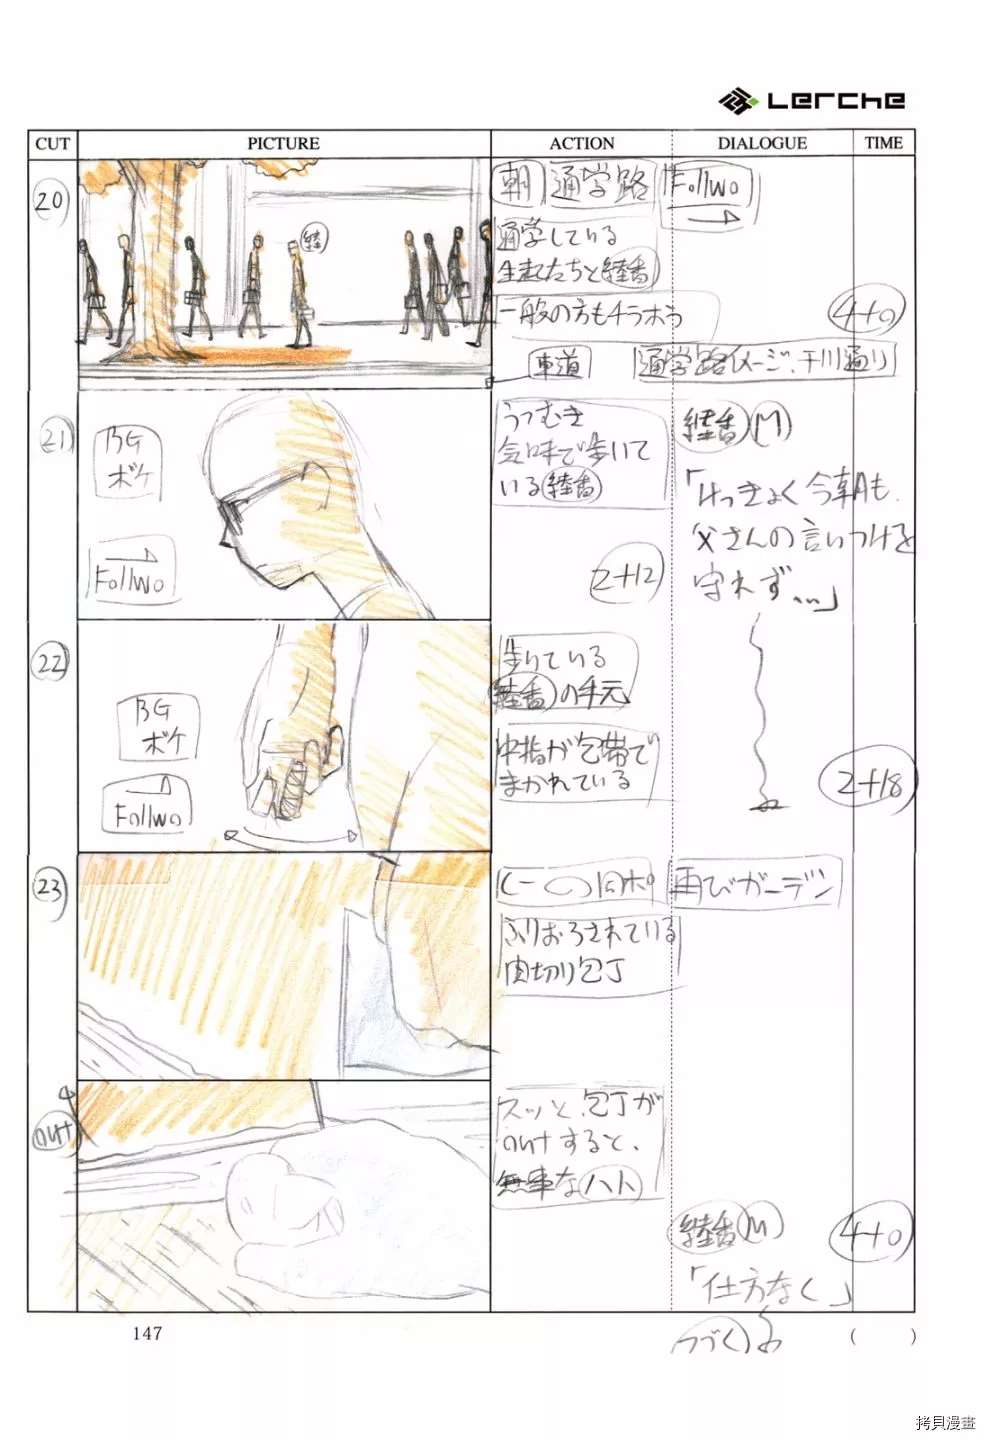 Lerche
CUT PICTURE ACTION DIALOGUE TIME
20
朝 通学路 Follwo
通学している
生徒たちと
一般の方もチラホラ
4+0
車道
通学路イメージ、千川通り
21
BG
ボケ
Follwo
うつむき
気味で歩いて
いる
2+12
M
「けっきょく今朝も、
父さんの言いつけを
守れず…」
22
BG
ボケ
Follwo
歩いている
の手元
中指が包帯で
まかれている
2+18
23
C-の同ポ 再びガーデン
ふりおろされている
肉切り包丁
out
スッと、包丁が
outすると、
無事なハト
M
4+0
「仕方なく」
つづく
147
( )
拷貝漫畫